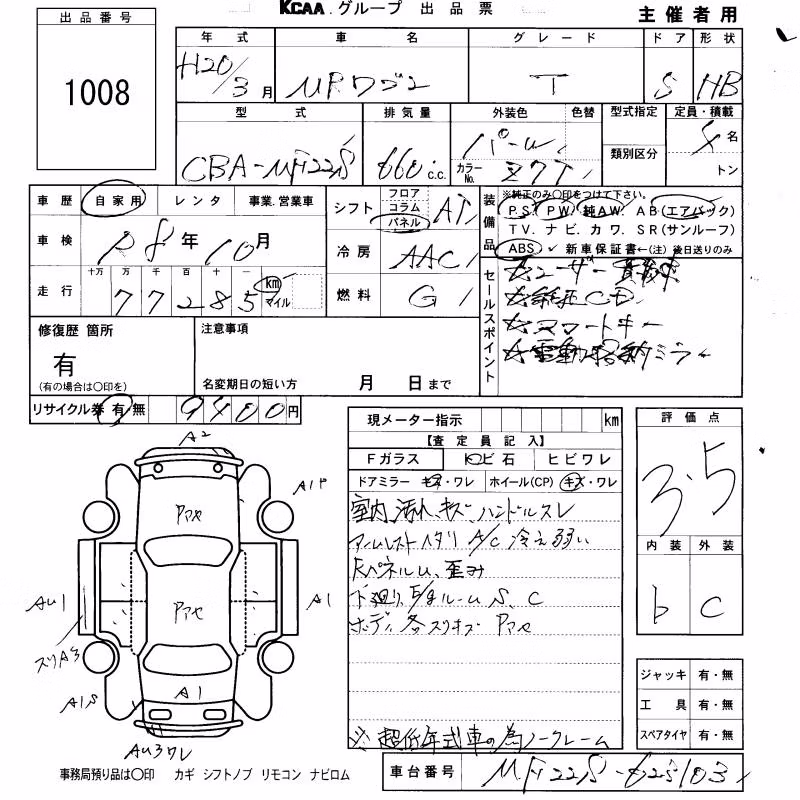 KCAA.グループ 出品票 主催者用
出品番号
1008
年式 車名 グレード ドア 形状
H20/3月 MRワゴン T 5 HB
型式 排気量 外装色 色替 型式指定 定員・積載
類別区分
CBA-MF22S 660 c.c. パール カラーNo. Z7T 4 名
トン
車歴 自家用 レンタ 事業.営業車
シフト フロア コラム パネル AT
装備品 ※純正のみ○印をつけて下さい。
P S. PW. 純AW. AB(エアバック)
TV. ナビ. カワ. SR(サンルーフ)
ABS ✓ 新車保証書←(注) 後日送りのみ
車検 R8年10月
冷房 AAC
走行 十万 万 千 百 十 一
77285 km マイル
燃料 G
セールスポイント
☆ユーザー買取車
☆純正CD
☆スマートキー
☆電動格納ミラー
修復歴 箇所
有
(有の場合は○印を)
注意事項
名変期日の短い方 月 日まで
リサイクル券 有 無 9400円
現メーター指示 km
【査定員記入】
Fガラス 飛び石 ヒビワレ
ドアミラー キズ・ワレ ホイール(CP) キズ・ワレ
室内汚れ、キズ、ハンドルスレ
アームレストヘタリ A/C 冷え弱い
歪み
下廻り、E/gルーム S、C
ボディ各スリキズ PアセA
※超低年式車の為ノークレーム
評価点
3.5
内装 外装
b C
ジャッキ 有・無
工具 有・無
スペアタイヤ 有・無
A2
A1P
Pアセ
AU1
Pアセ
A1
スリA3
A1S
A1
AU3ワレ
事務局預り品は○印 カギ シフトノブ リモコン ナビロム
車台番号 MF22S-625103